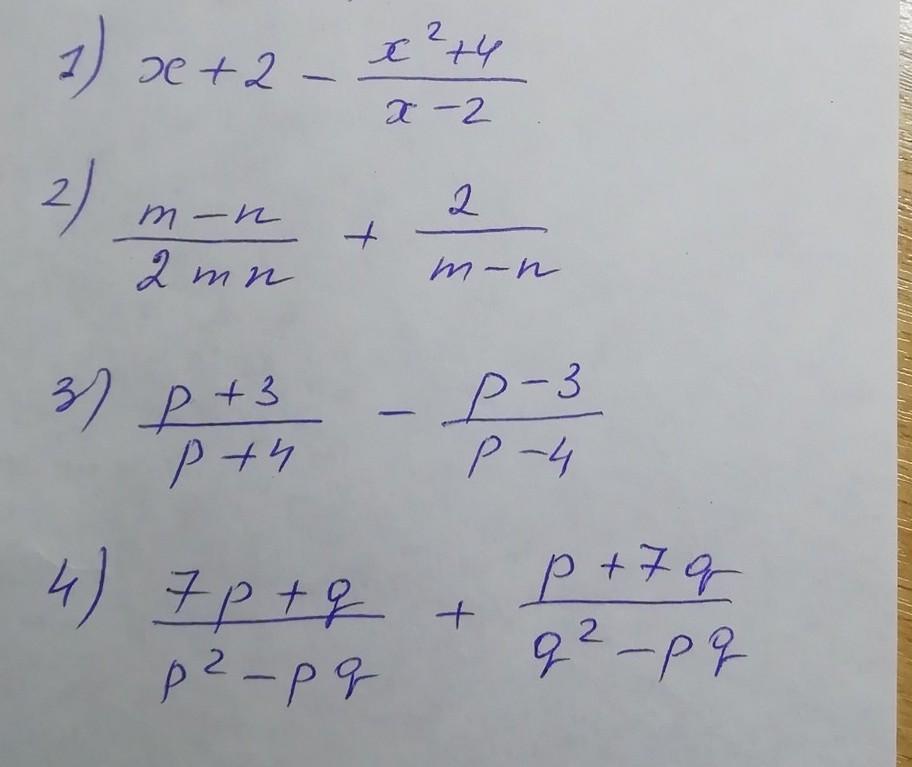 1) x + 2 - \frac{x^2+4}{x-2}
2) \frac{m-n}{2mn} + \frac{2}{m-n}
3) \frac{p+3}{p+4} - \frac{p-3}{p-4}
4) \frac{7p+q}{p^2-pq} + \frac{p+7q}{q^2-pq}